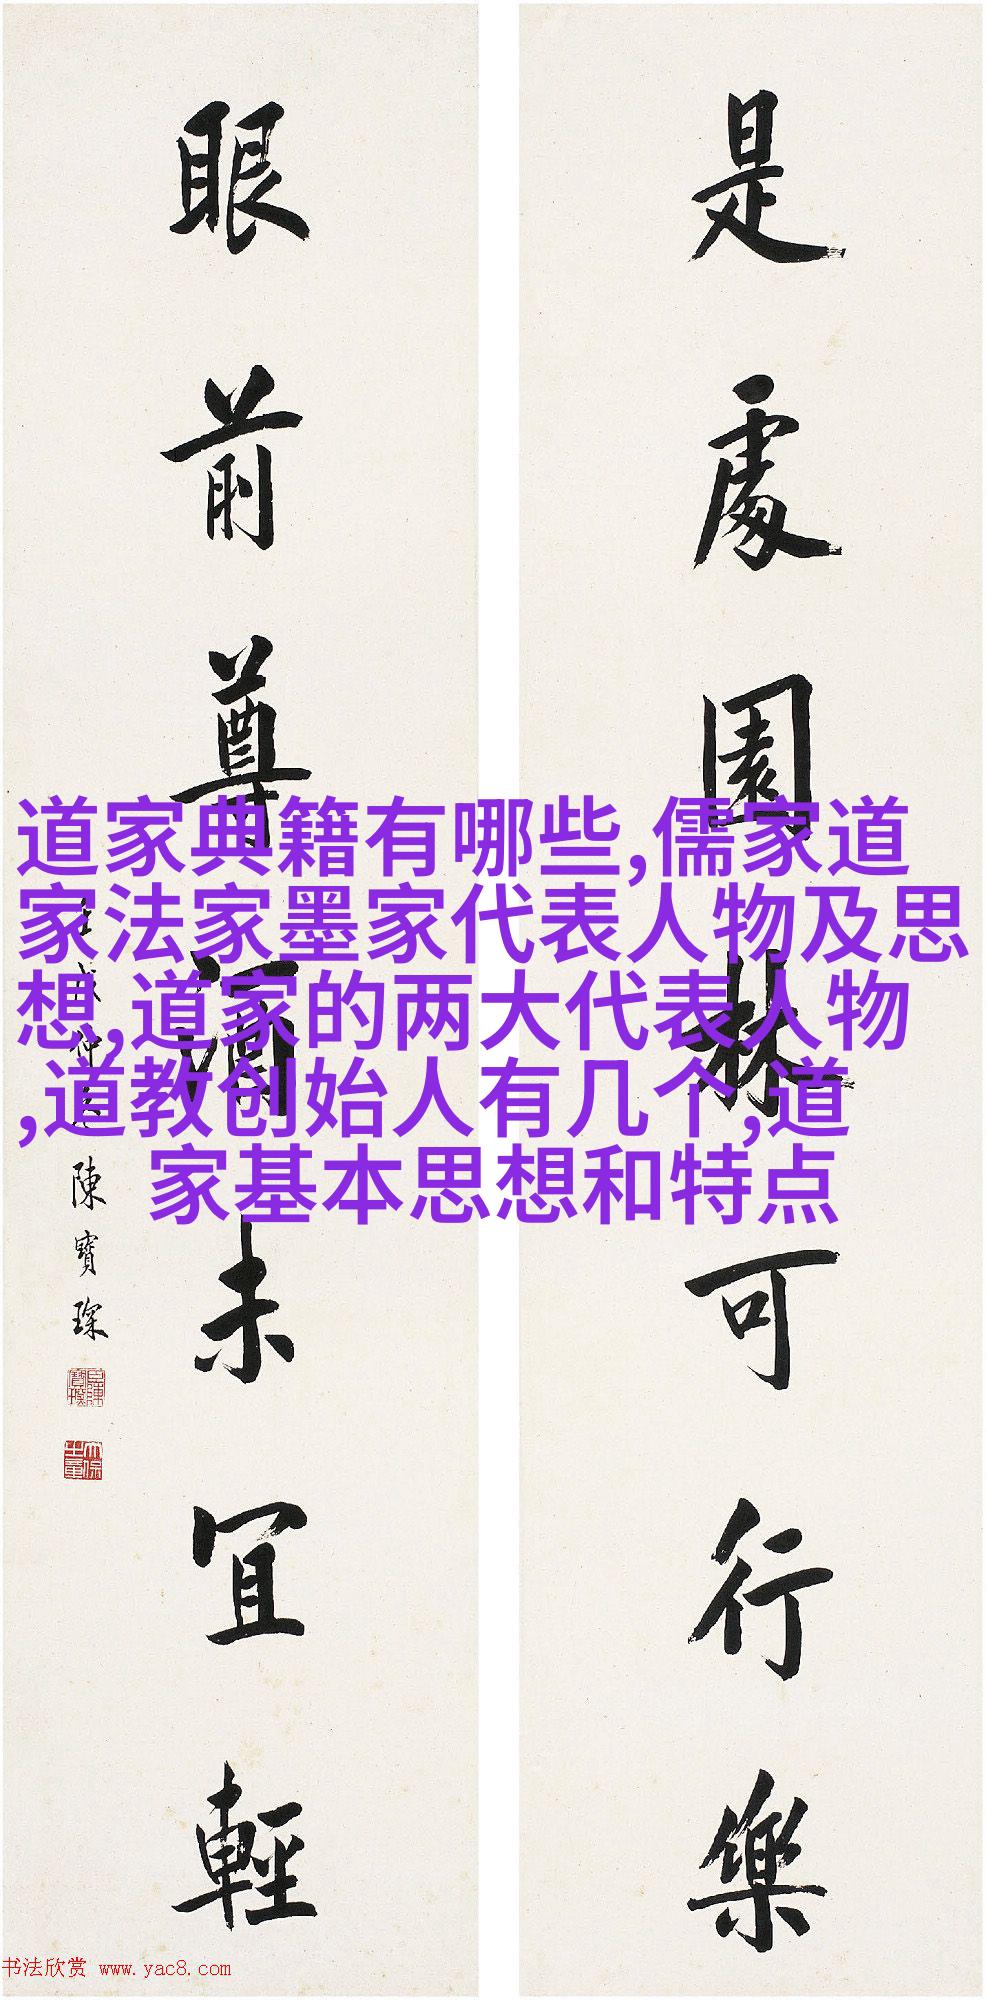 是處園林可行樂
眼前尊酒未宜輕
陳寶琛
道家典籍有哪些,儒家道
家法家墨家代表人物及思
想,道家的两大代表人物
,道教创始人有几个,道
家基本思想和特点
书法欣赏 www.yac8.com